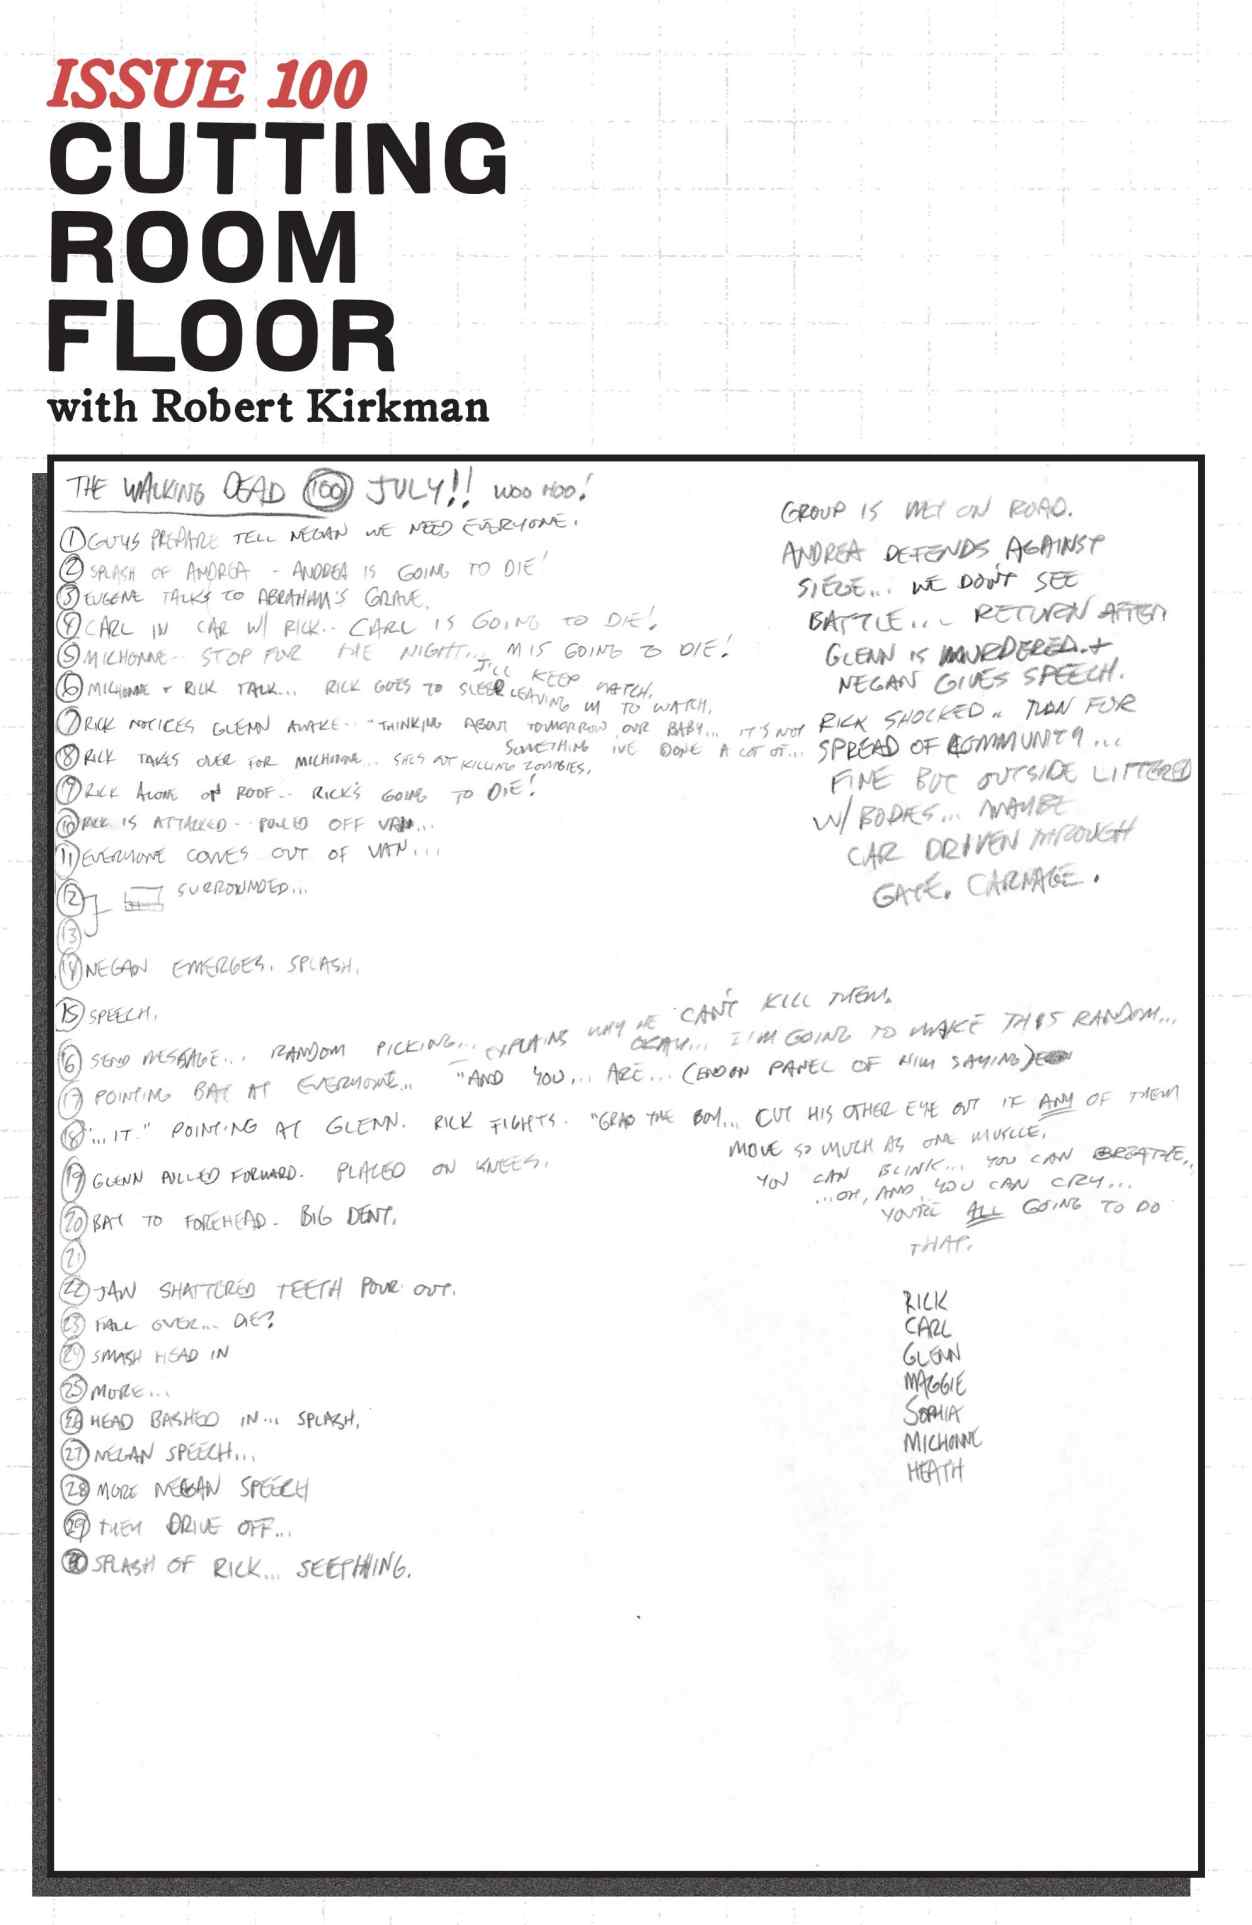 ISSUE 100
CUTTING
ROOM
FLOOR
with Robert Kirkman
THE WALKING DEAD 100 JULY!! WOO HOO!
1 GUYS PREPARE TELL NEGAN WE NEED EVERYONE.
2 SPLASH OF ANDREA - ANDREA IS GOING TO DIE!
3 EUGENE TALKS TO ABRAHAM'S GRAVE.
4 CARL IN CAR W/ RICK.. CARL IS GOING TO DIE!
5 MICHONNE.. STOP FOR THE NIGHT... M IS GOING TO DIE!
6 MICHONNE + RICK TALK... RICK GOES TO SLEEP LEAVING M TO WATCH.
I'LL KEEP WATCH.
7 RICK NOTICES GLENN AWAKE.. "THINKING ABOUT TOMORROW, OUR BABY... IT'S NOT
SOMETHING I'VE DONE A LOT OF...
8 RICK TAKES OVER FOR MICHONNE... SHE'S OUT KILLING ZOMBIES.
9 RICK ALONE ON ROOF.. RICK'S GOING TO DIE!
10 RICK IS ATTACKED.. PULLED OFF VAN...
11 EVERYONE COMES OUT OF VAN...
12 SURROUNDED...
13
14 NEGAN EMERGES. SPLASH.
15 SPEECH.
16 SEND MESSAGE... RANDOM PICKING... EXPLAINS WHY HE CAN'T KILL THEM.
OKAY... I'M GOING TO MAKE THIS RANDOM...
17 POINTING BAT AT EVERYONE... "AND YOU... ARE... (END ON PANEL OF HIM SAYING)
18 "...IT." POINTING AT GLENN. RICK FIGHTS. "GRAB THE BOY... CUT HIS OTHER EYE OUT IF ANY OF THEM
MOVE SO MUCH AS ONE MUSCLE.
YOU CAN BLINK... YOU CAN BREATHE..
...OH, AND YOU CAN CRY...
YOU'RE ALL GOING TO DO
THAT.
19 GLENN PULLED FORWARD. PLACED ON KNEES.
20 BAT TO FOREHEAD. BIG DENT.
21
22 JAW SHATTERED TEETH POUR OUT.
23 FALL OVER... DIE?
24 SMASH HEAD IN
25 MORE...
26 HEAD BASHED IN... SPLASH.
27 NEGAN SPEECH...
28 MORE NEGAN SPEECH
29 THEY DRIVE OFF...
30 SPLASH OF RICK... SEETHING.
GROUP IS MET ON ROAD.
ANDREA DEFENDS AGAINST
SIEGE... WE DON'T SEE
BATTLE... RETURN AFTER
GLENN IS MURDERED +
NEGAN GIVES SPEECH.
RICK SHOCKED.. TURN FOR
SPREAD OF COMMUNITY...
FINE BUT OUTSIDE LITTERED
W/ BODIES... MAYBE
CAR DRIVEN THROUGH
GATE. CARNAGE.
RICK
CARL
GLENN
MAGGIE
SOPHIA
MICHONNE
HEATH